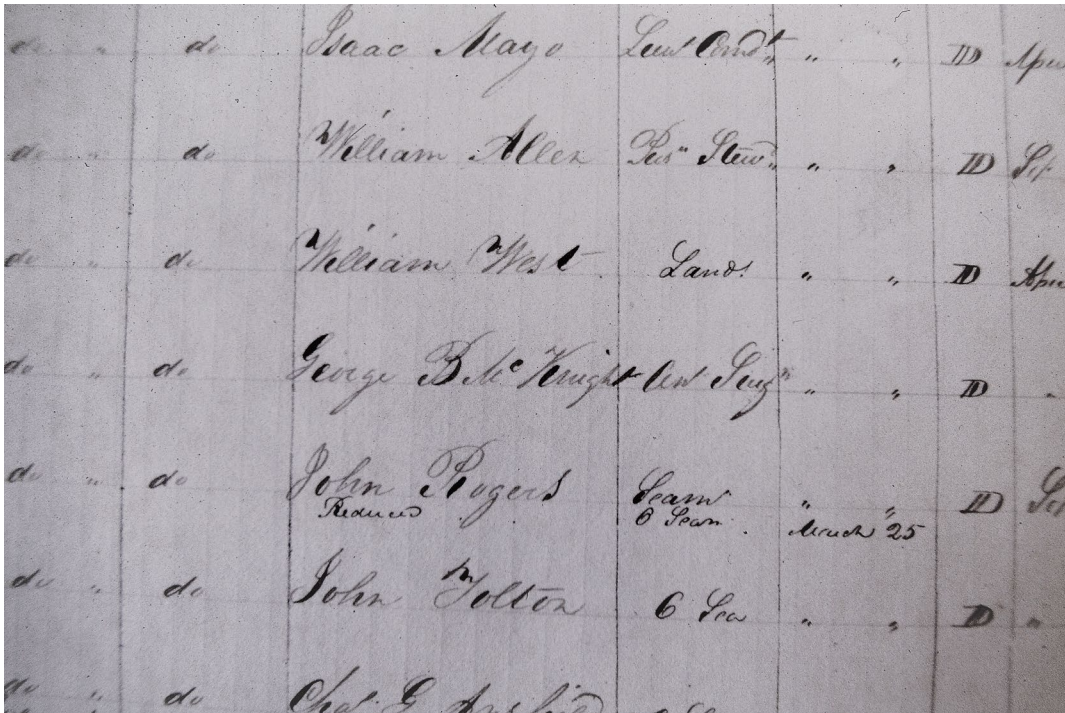 do " do Isaac Mayo Lieut Comdt " " D Apr
do " do William Allen Purs Stewd " " D
do " do William West Lands " " D Apr
do " do George B Mc Knight Surgn " " D "
do " do John Rogers Seam " " D
Reduced O Seam March 25
do " do John Tolton O Sea " " D "
do " do Chas G